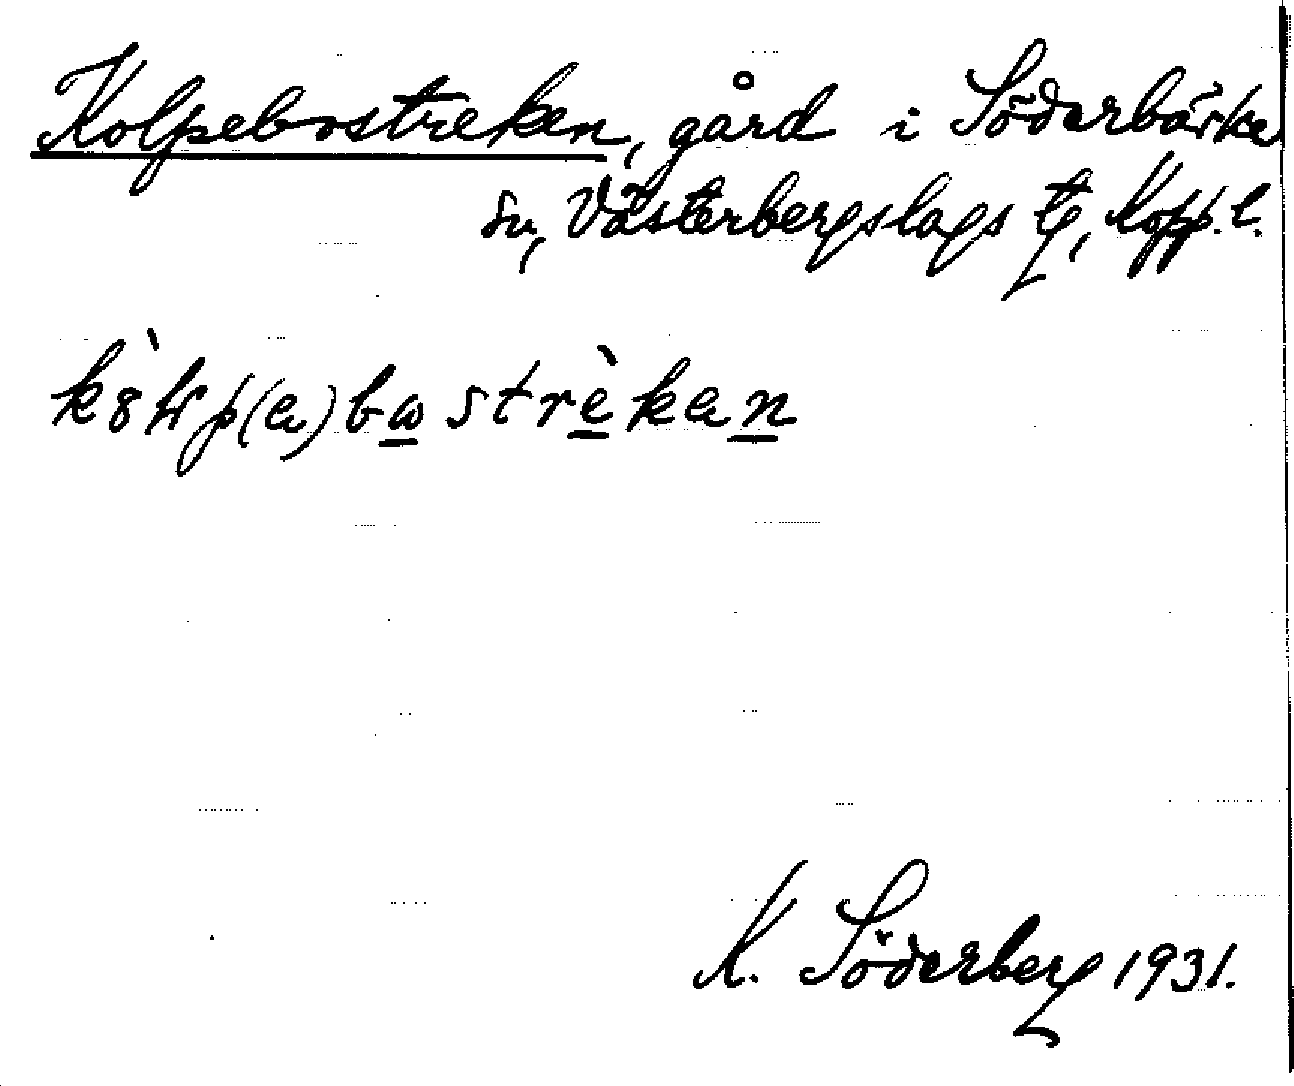 Kolpebostreken, gård i Söderbärke
sn, Västerbergslags tg, Kopp. l.
K. Söderberg 1931.